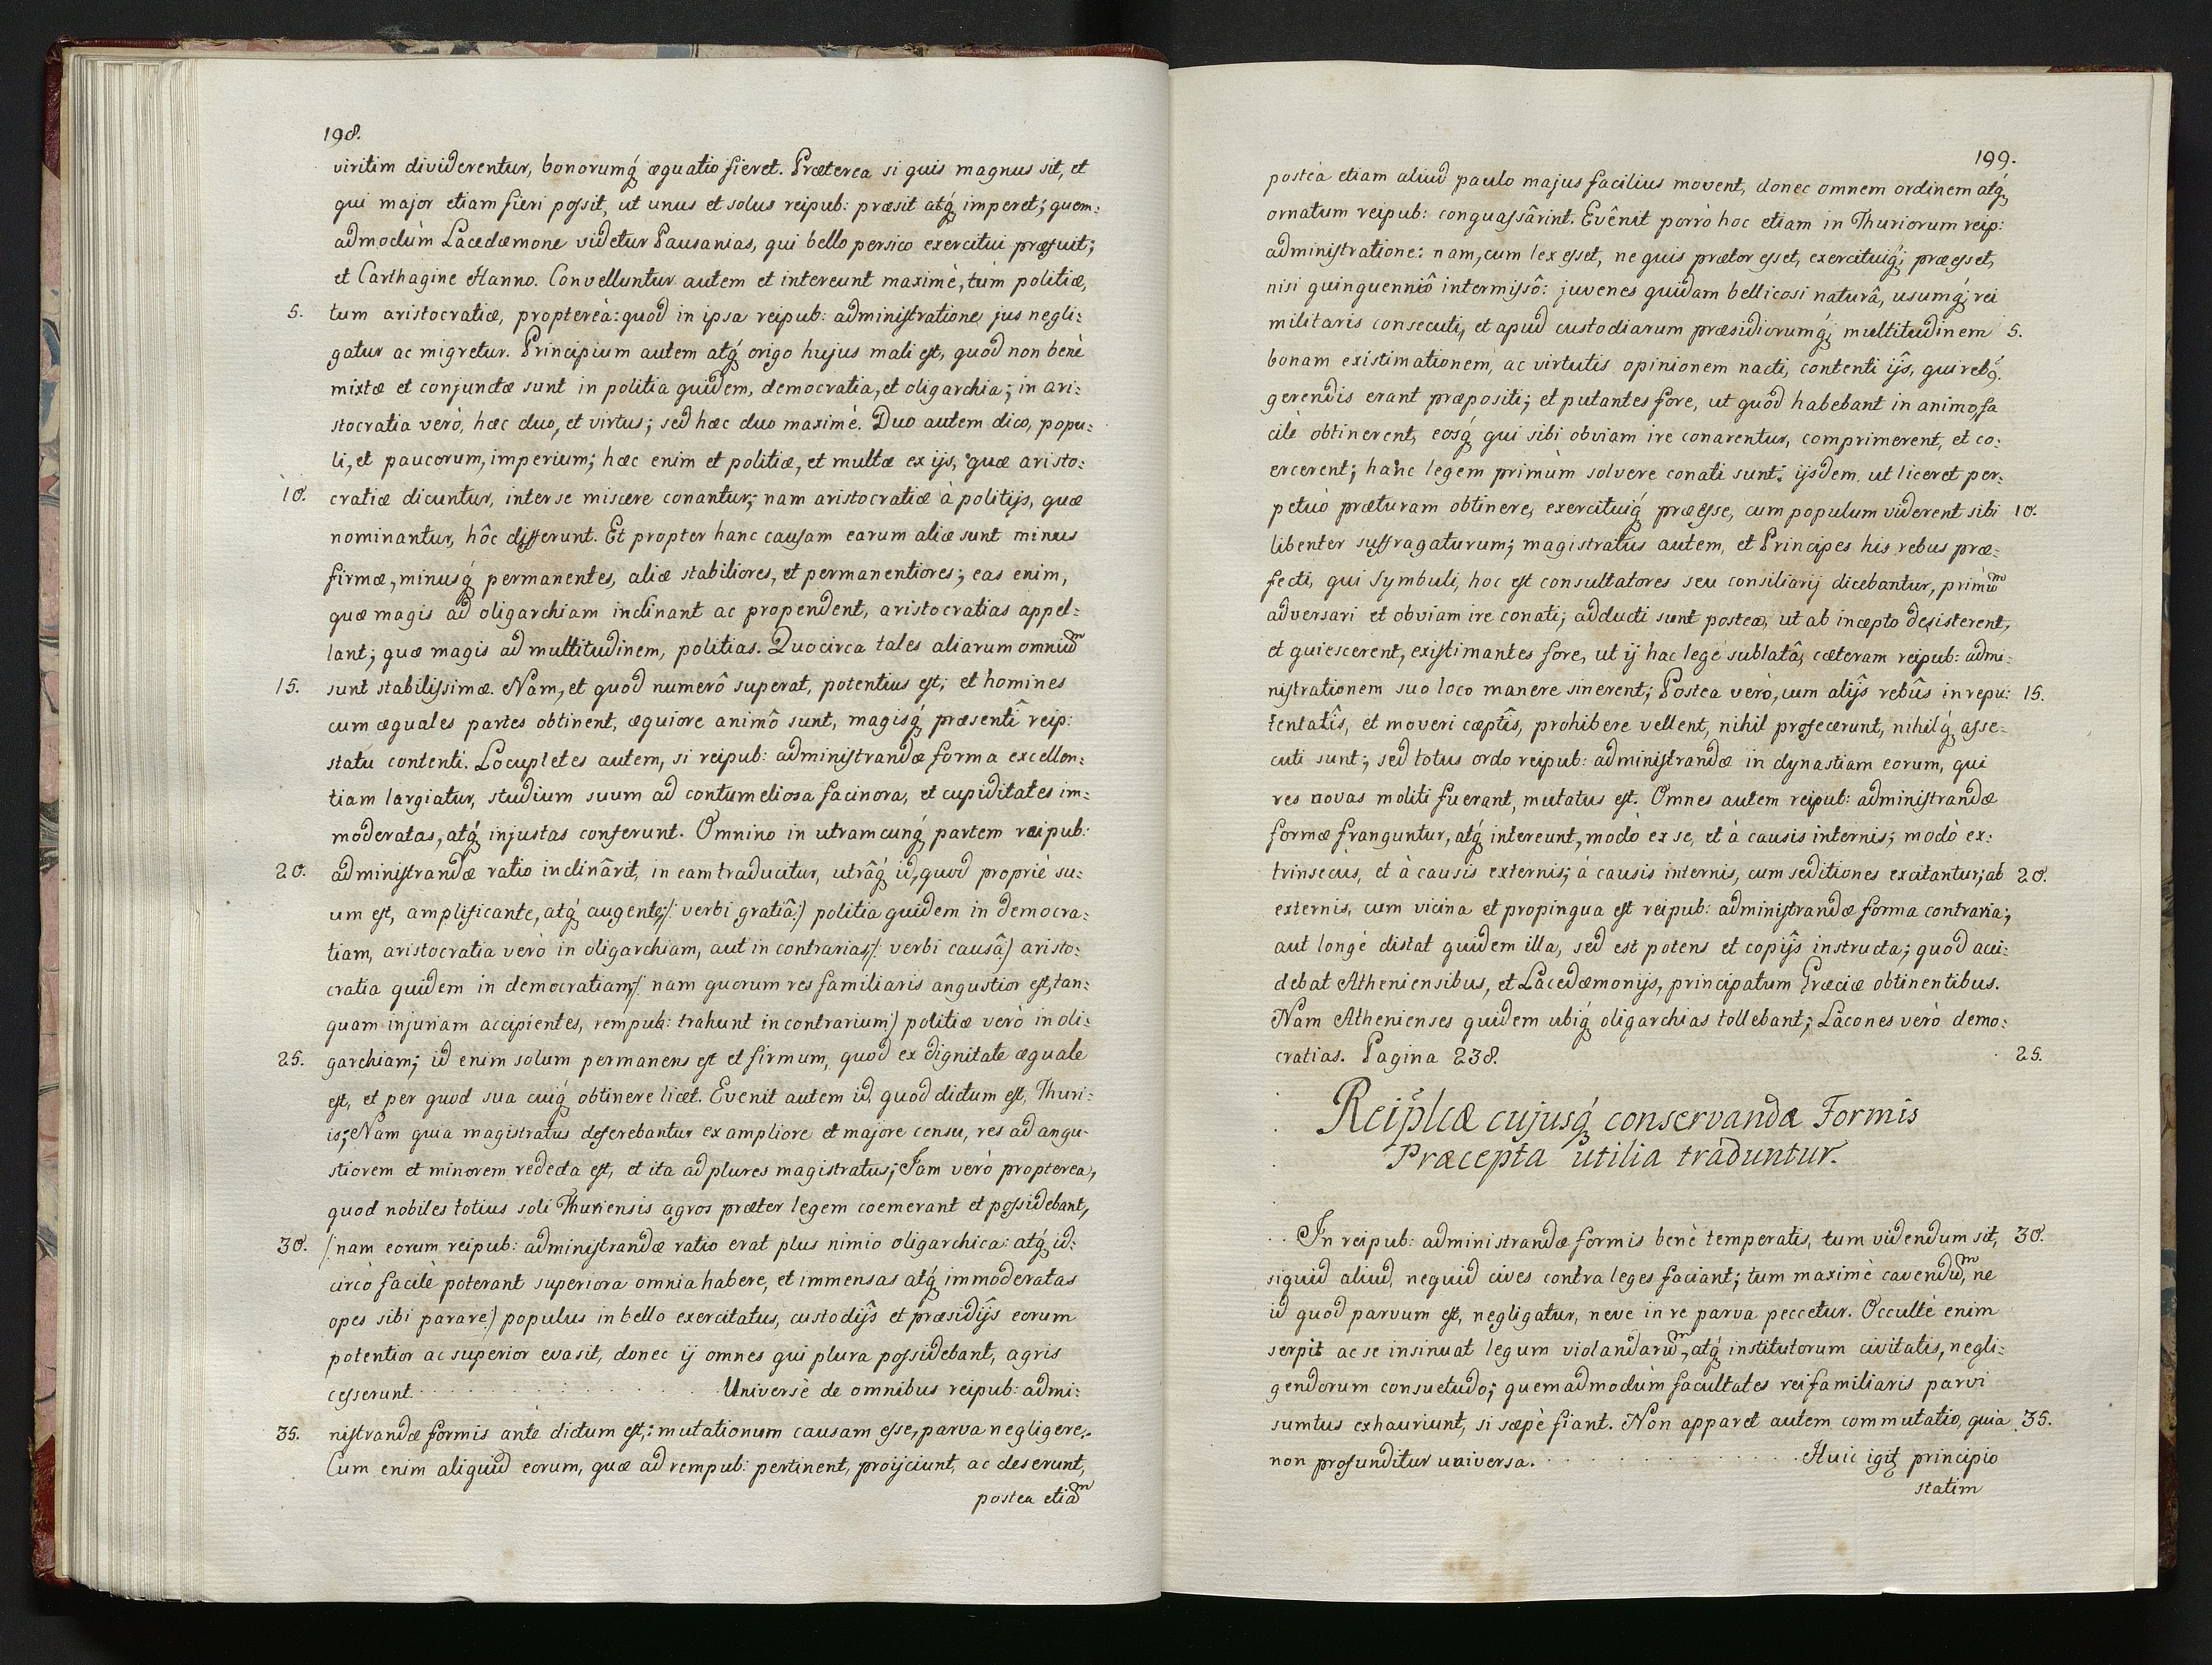 198.
viritim dividerentur, bonorumq́ æquatio fieret. Præterea si quis magnus sit, et
qui major etiam fieri possit, ut unus et solus reipub: præsit atq́ imperet; quem:
admodùm Lacedæmone videtur Pausanias, qui bello persico exercitui præfuit;
et Carthagine Hanno. Convelluntur autem et intereunt maximè, tùm politiæ,
5. tum aristocratiæ, proptereà: quod in ipsa reipub: administratione jus negli:
gatur ac migretur. Principium autem atq́ origo hujus mali est, quod non benè
mixtæ et conjunctæ sunt in politia quidem, democratia, et oligarchia; in ari:
stocratia verò, hæc duo, et virtus; sed hæc duo maximè. Duo autem dico, popu:
li, et paucorum, imperium; hæc enim et politiæ, et multæ ex ijs, quæ aristo:
10. cratiæ dicuntur, inter se miscere conantur; nam aristocratiæ à politijs, quæ
nominantur, hôc differunt. Et propter hanc causam earum aliæ sunt minus
firmæ, minusq́ permanentes, aliæ stabiliores, et permanentiores; eas enim,
quæ magis ad oligarchiam inclinant ac propendent, aristocratias appel:
lant; quæ magis ad multitudinem, politias. Quocirca tales aliarum omniuᵐ
15. sunt stabilissimæ. Nam, et quod numerô superat, potentius est; et homines
cum æquales partes obtinent, æquiore animô sunt, magisq́ præsentî reip:
statu contenti. Locupletes autem, si reipub: administrandæ forma excellen:
tiam largiatur, studium suum ad contumeliosa facinora, et cupiditates im:
moderatas, atq́ injustas conferunt. Omnino in utramcunq́ partem reipub:
20. administrandæ ratio inclinârit, in eam traducitur, utrâq́ id, quod propriè su:
um est, amplificante, atq́ augente; /: verbi gratiâ:/ politia quidem in democra:
tiam, aristocratia verò in oligarchiam, aut in contrarias; /: verbi causâ/ aristo:
cratia quidem in democratiam; /: nam quorum res familiaris angustior est, tan:
quam injuriam accipientes, rempub: trahunt in contrarium:/ politiæ verò in oli:
25. garchiam; id enim solum permanens est et firmum, quod ex dignitate æquale
est, et per quod sua cuiq́ obtinere licet. Evenit autem id quod dictum est, Thuri:
is; Nam quia magistratus deferebantur ex ampliore et majore censu, res ad angu:
stiorem et minorem redecta est, et ita ad plures magistratus; Jam verò propterea,
quod nobiles totius soli Thuriensis agros præter legem coemerant et possidebant,
30. /: nam eorum reipub: administrandæ ratio erat plus nimio oligarchica: atq́ id:
circò facilè poterant superiora omnia habere, et immensas atq́ immoderatas
opes sibi parare:/ populus in bello exercitatus, custodijs et præsidijs eorum
potentior ac superior evasit, donec ij omnes qui plura possidebant, agris
cesserunt. . . . . . . . . . . . Universè de omnibus reipub: admi:
35. nistrandæ formis antè dictum est,: mutationum causam esse, parva negligere,.
Cum enim aliquid eorum, quæ ad rempub: pertinent, proijciunt, ac deserunt,
postea etiaᵐ
199.
posteà etiam aliud paulo majus facilius movent, donec omnem ordinem atq́
ornatum reipub: conquassârint. Evênit porrò hoc etiam in Thuriorum reip:
administratione: nam, cum lex esset, ne quis prætor esset, exercituiq́; præesset,
nisi quinquenniô intermissô: juvenes quidam bellicosi naturâ, usumq́; rei
militaris consecuti, et apud custodiarum præsidiorumq́; multitudinem 5.
bonam existimationem, ac virtutis opinionem nacti, contenti ijs, qui rebꝰ.
gerendis erant præpositi; et putantes fore, ut quod habebant in animo, fa
cilè obtinerent, eosq́ qui sibi obviam ire conarentur, comprimerent, et co:
ercerent; hanc legem primùm solvere conati sunt: ijsdem ut liceret per:
petuò præturam obtinere, exercituiq́ præesse, cum populum viderent sibi 10.
libenter suffragaturum; magistratus autem, et Principes his rebus præ:
fecti, qui Symbuli, hoc est consultatores seu consiliarij dicebantur, primùᵐ
adversari et obviam ire conati; adducti sunt postea, ut ab incæpto desisterent,
et quiescerent, existimantes fore, ut ij hac lege sublatâ, cæteram reipub: admi:
nistrationem suo loco manere sinerent; Postea verò, cum alijs rebûs in repu: 15.
tentatîs, et moveri cæptîs, prohibere vellent, nihil profecerunt, nihilq́ asse:
cuti sunt; sed totus ordo reipub: administrandæ in dynastiam eorum, qui
res novas moliti fuerant, mutatus est. Omnes autem reipub: administrandæ
formæ franguntur, atq́ intereunt, modò ex se, et à causis internis; modò ex:
trinsecùs, et à causis externis; à causis internis, cum seditiones excitantur; ab 20.
externis, cum vicina et propinqua est reipub: administrandæ forma contraria;
aut longè distat quidem illa, sed est potens et copijs instructa; quod acci:
debat Atheniensibus, et Lacedæmonijs, principatum Græciæ obtinentibus.
Nam Athenienses quidem ubiq́ oligarchias tollebant; Lacones verò demo:
cratias. Pagina 238. 25.
Reiplicæ cujusq́ conservandæ Formis
Præcepta utilia traduntur.
In reipub: administrandæ formis benè temperatis, tum videndum sit, 30.
siquid aliud, nequid cives contra leges faciant; tum maximè cavenduᵐ, ne
id quod parvum est, negligatur, neve in re parva peccetur. Occultè enim
serpit ac se insinuat legum violandaruᵐ, atq́ institutorum civitatis, negli:
gendorum consuetudo; quemadmodùm facultates rei familiaris parvi
sumtus exhauriunt, si sæpè fiant. Non apparet autem commutatio, quia 35.
non profunditur universa. . . . . . . . . . . Huic igiţ principio
statim